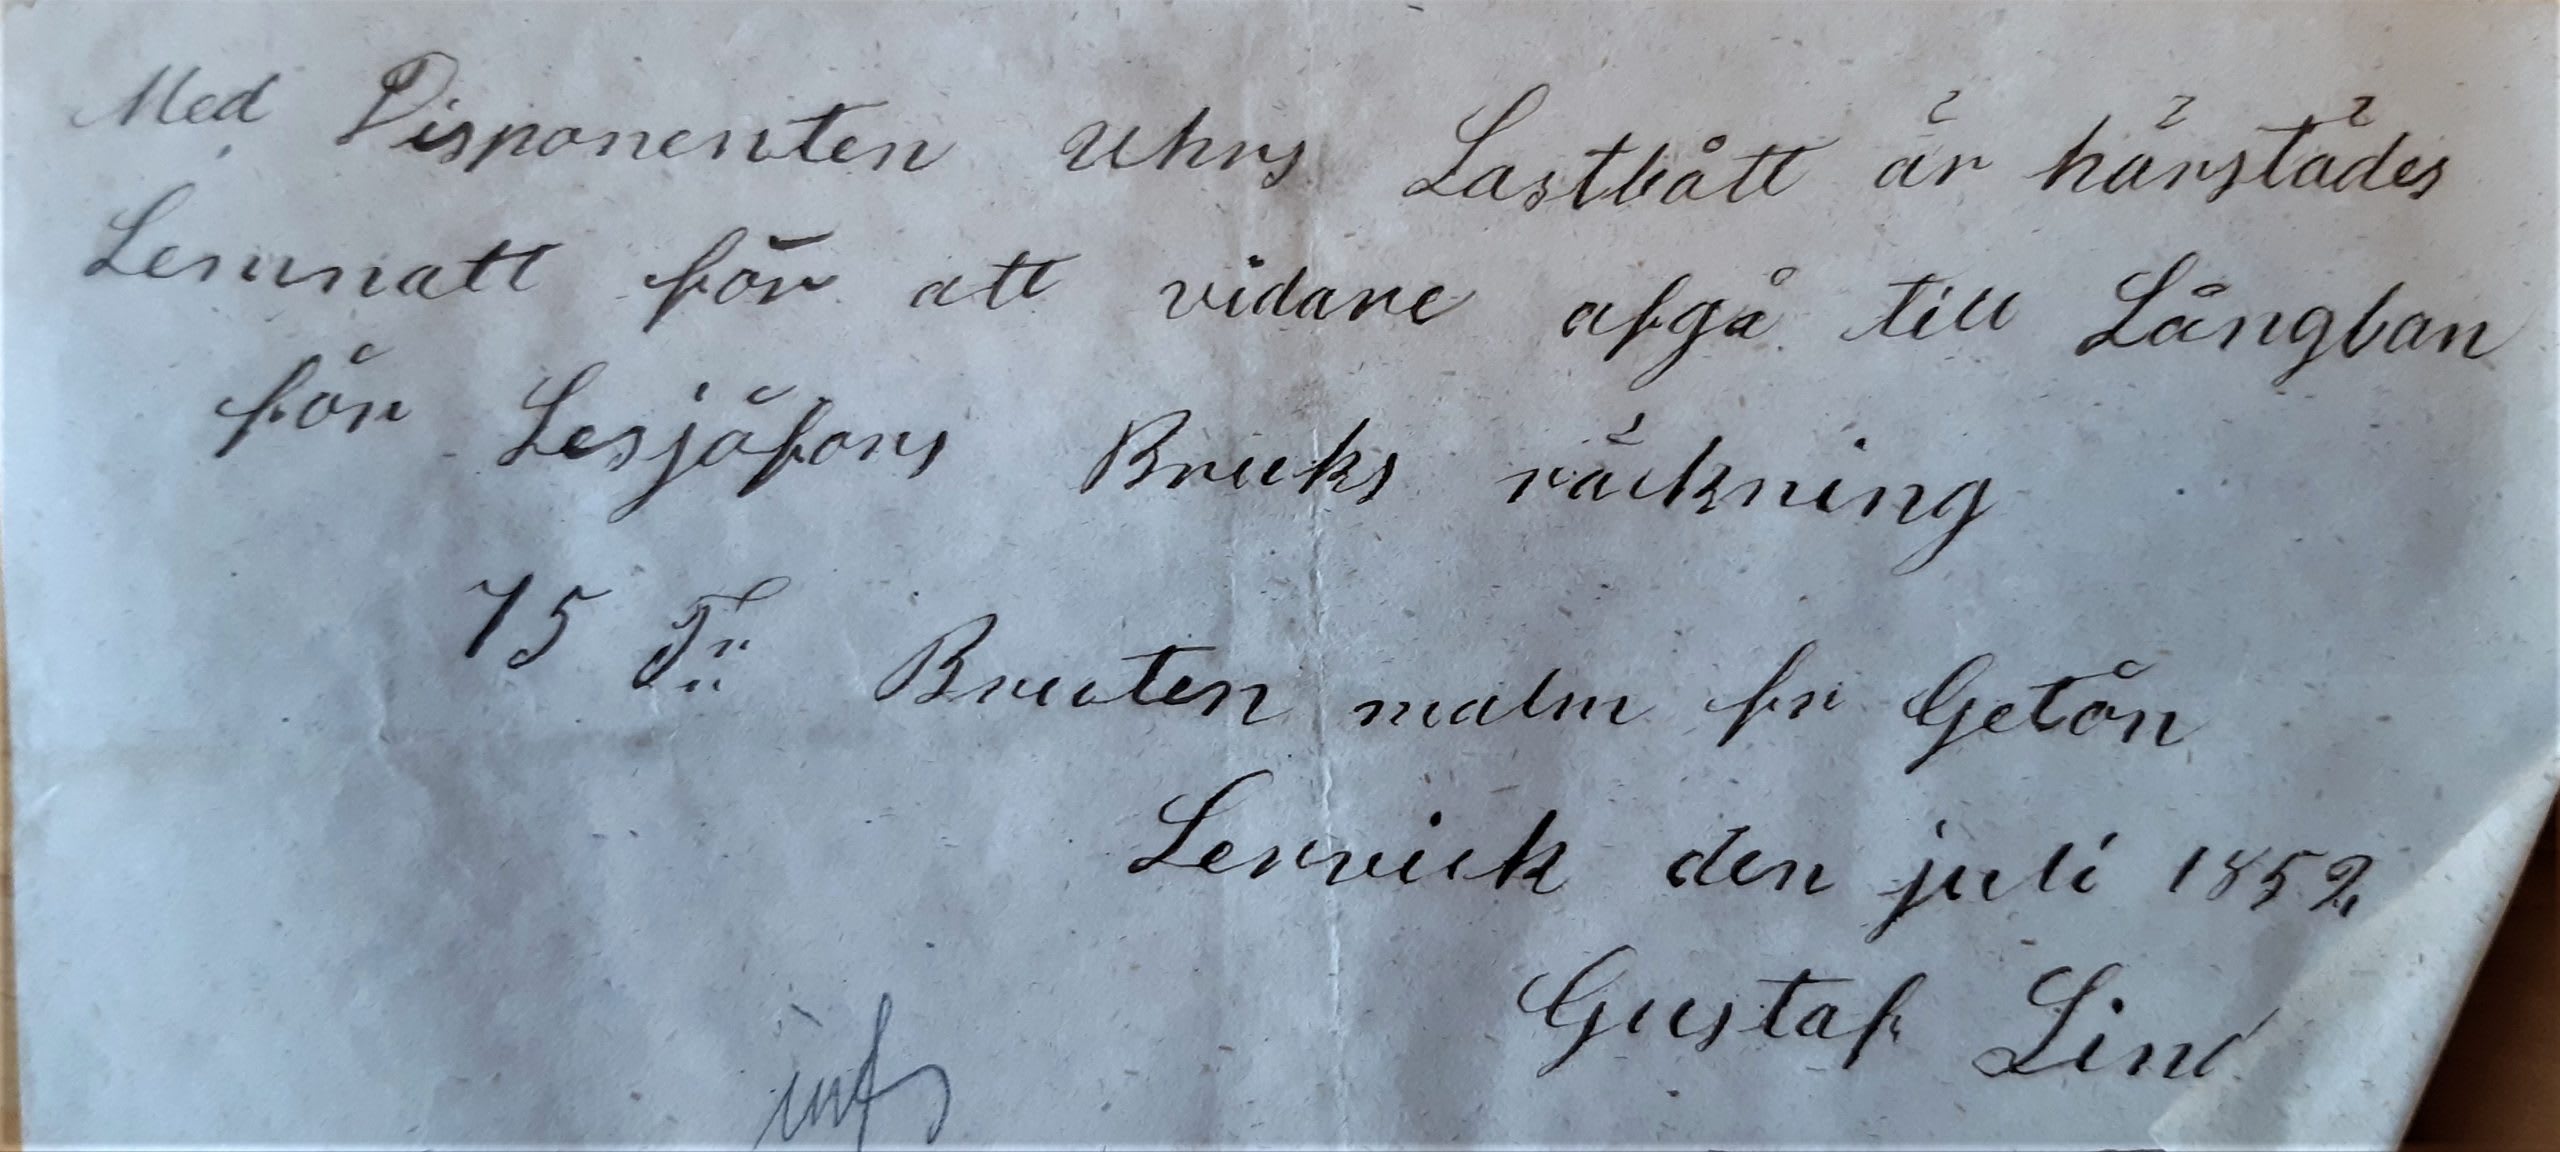 Med Disponenten Uhrs Lastbått är härstädes
Lemnatt för att vidare afgå till Långban
för Lesjöfors Bruks räckning
75 T:u Bruten malm fr Getön
Lervick den juli 1852
Gustaf Lind